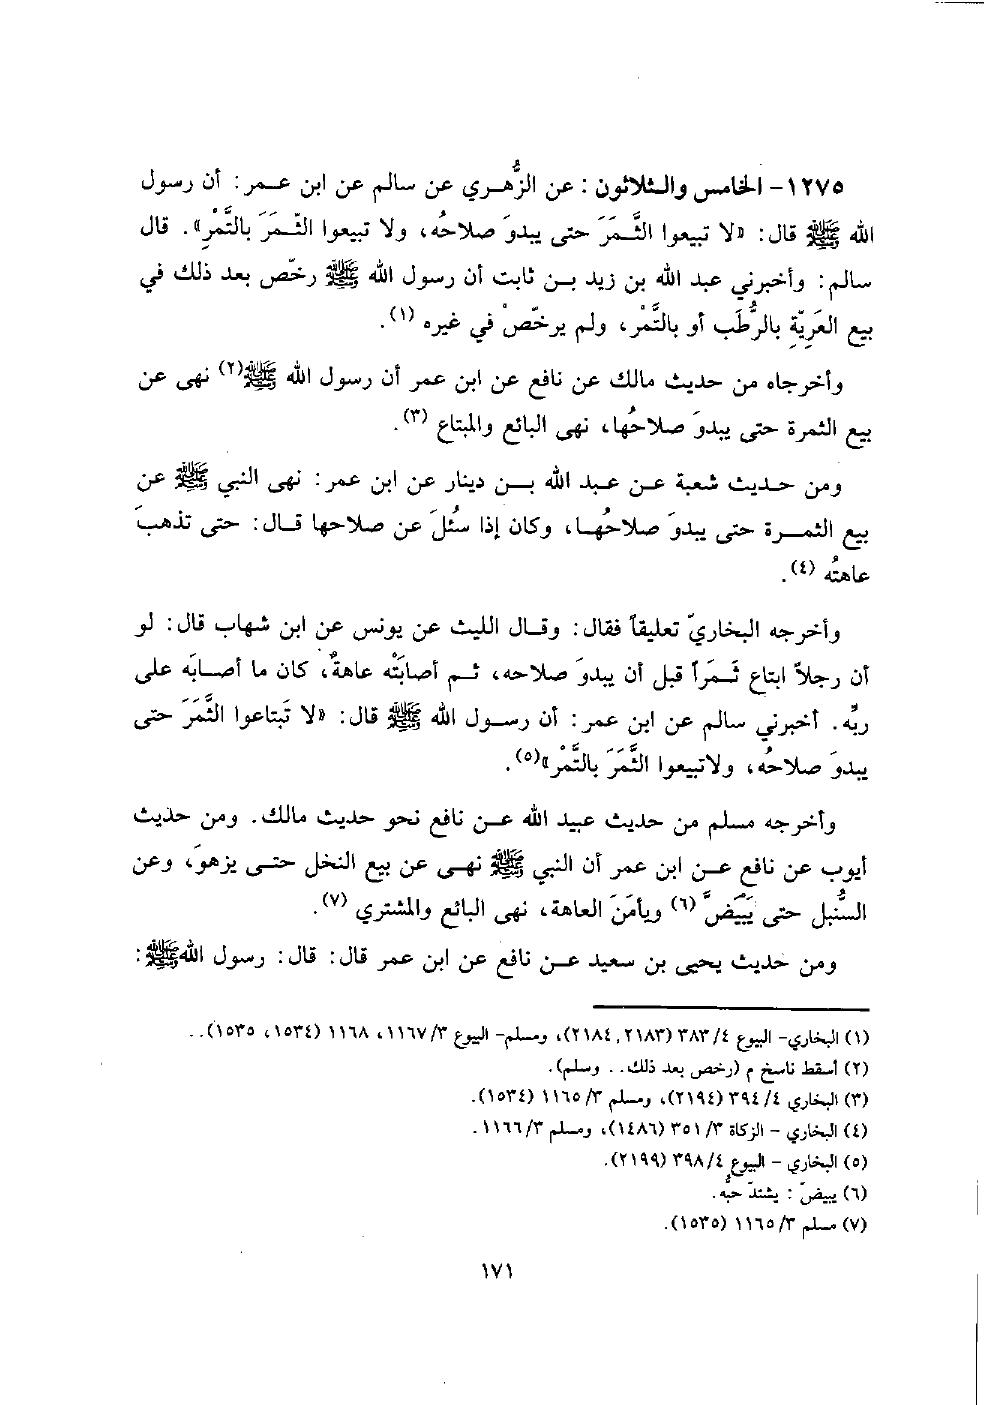 ١٢٧٥- الخامس والثلاثون : عن الزُّهري عن سالم عن ابن عمر: أن رسول
الله ﷺ قال: «لا تبيعوا الثَّمَرَ حتى يبدوَ صلاحُه، ولا تبيعوا الثَّمَرَ بالتَّمْرِ». قال
سالم: وأخبرني عبد الله بن زيد بن ثابت أن رسول الله ﷺ رخّص بعد ذلك في
بيع العَرِيّةِ بالرُّطَبِ أو بالتَّمْر، ولم يرخّصْ في غيره (١).
وأخرجاه من حديث مالك عن نافع عن ابن عمر أن رسول الله ﷺ(٢) نهى عن
بيع الثمرة حتى يبدوَ صلاحُها، نهى البائع والمبتاع (٣).
ومن حديث شعبة عن عبد الله بن دينار عن ابن عمر: نهى النبي ﷺ عن
بيع الثمرة حتى يبدوَ صلاحُها، وكان إذا سُئلَ عن صلاحها قال: حتى تذهبَ
عاهتُه (٤).
وأخرجه البخاريّ تعليقاً فقال: وقال الليث عن يونس عن ابن شهاب قال: لو
أن رجلاً ابتاع ثَمَراً قبل أن يبدوَ صلاحه، ثم أصابَتْه عاهةٌ، كان ما أصابَه على
ربِّه. أخبرني سالم عن ابن عمر: أن رسول الله ﷺ قال: «لا تَبتاعوا الثَّمَرَ حتى
يبدوَ صلاحُه، ولاتبيعوا الثَّمَرَ بالتَّمْر»(٥).
وأخرجه مسلم من حديث عبيد الله عن نافع نحو حديث مالك. ومن حديث
أيوب عن نافع عن ابن عمر أن النبي ﷺ نهى عن بيع النخل حتى يزهوَ، وعن
السُّنبل حتى يَبْيَضَّ (٦) ويأمَنَ العاهة، نهى البائع والمشتري (٧).
ومن حديث يحيى بن سعيد عن نافع عن ابن عمر قال: قال: رسول اللهﷺ:
(١) البخاري- البيوع ٤/ ٣٨٣ (٢١٨٣, ٢١٨٤)، ومسلم- البيوع ٣/ ١١٦٧، ١١٦٨ (١٥٣٤، ١٥٣٥)..
(٢) أسقط ناسخ م (رخص بعد ذلك.. وسلم).
(٣) البخاري ٤/ ٣٩٤ (٢١٩٤)، ومسلم ٣/ ١١٦٥ (١٥٣٤).
(٤) البخاري - الزكاة ٣/ ٣٥١ (١٤٨٦)، ومسلم ٣/ ١١٦٦.
(٥) البخاري - البيوع ٤/ ٣٩٨ (٢١٩٩).
(٦) يبيضّ : يشتدّ حبُّه.
(٧) مسلم ٣/ ١١٦٥ (١٥٣٥).
١٧١